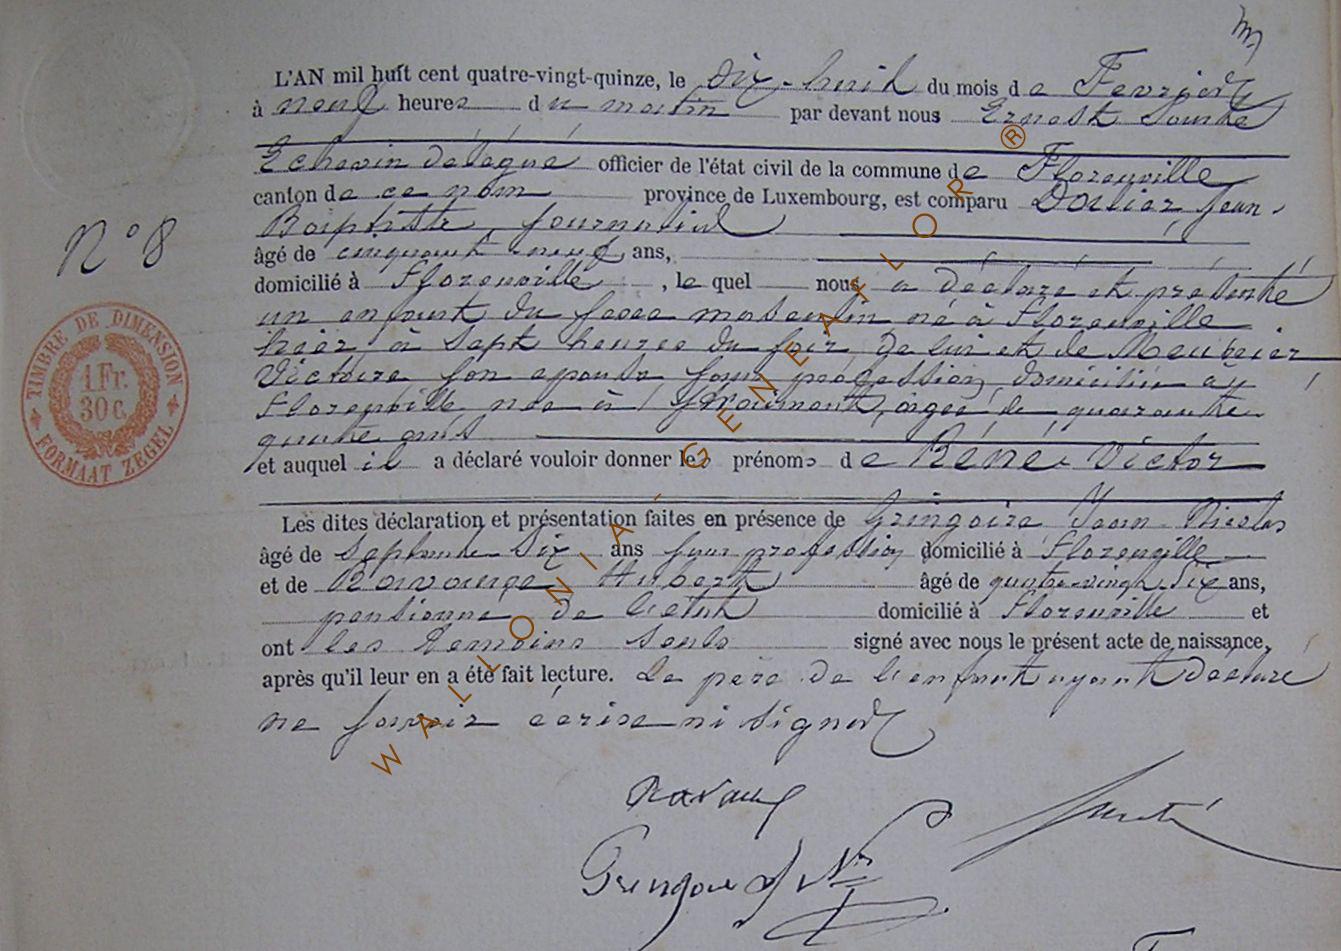 L'AN mil huit cent quatre-vingt-quinze, le dix-huit du mois de Fevrier
à neuf heures du matin par devant nous Ernest
Echevin délégué officier de l'état civil de la commune de Florenville
canton de ce nom province de Luxembourg, est comparu Jean
Baptiste journalier
N° 8
âgé de cinquante neuf ans,
domicilié à Florenville, lequel nous a déclaré et présenté
un enfant du sexe masculin né à Florenville
hier à sept heures du soir, de lui et de
Victoire son epouse sans profession, domiciliée à
Florenville née à âgée de quarante
quatre ans
et auquel il a déclaré vouloir donner les prénoms de Réné Victor
Les dites déclaration et présentation faites en présence de Gringoire Jean Nicolas
âgé de septante six ans sans profession domicilié à Florenville
et de Hubert âgé de quatre-vingt six ans,
pensionné de l'état domicilié à Florenville et
ont les temoins seuls signé avec nous le présent acte de naissance,
après qu'il leur en a été fait lecture. Le père de l'enfant ayant déclaré
ne savoir écrire ni signer
TIMBRE DE DIMENSION
1 Fr.
30 c.
FORMAAT ZEGEL
WALLONIA-GENEAFLOR ®